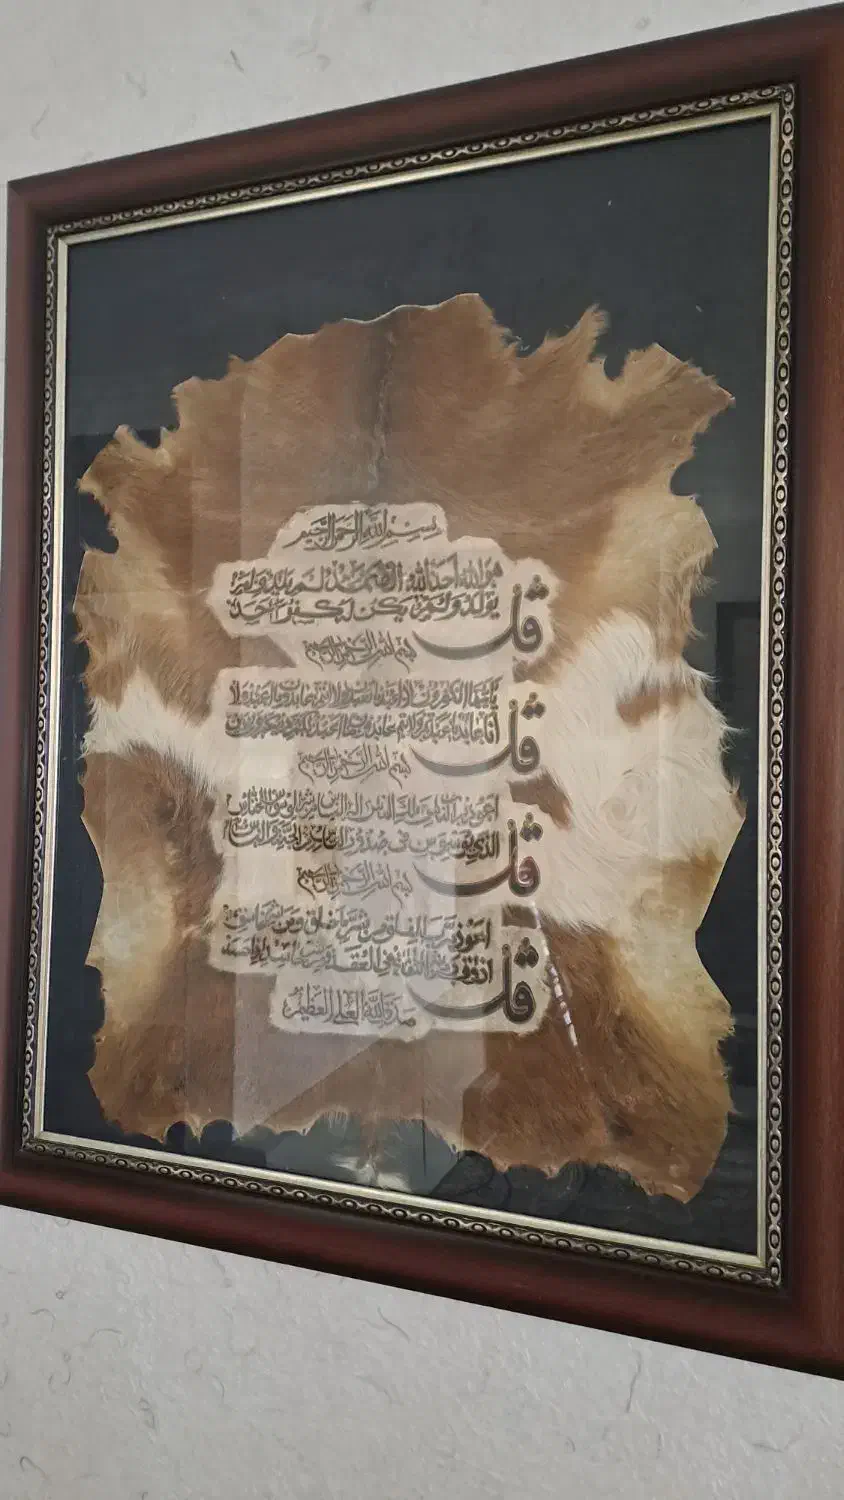 بسم الله الرحمن الرحيم
قل هو الله احد الله الصمد لم يلد ولم
يولد ولم يكن له كفوا احد
بسم الله الرحمن الرحيم
قل يا ايها الكفرون لا اعبد ما تعبدون ولا انتم عابدون ما اعبد ولا
انا عابد ما عبدتم ولا انتم عابدون ما اعبد لكم دينكم ولي دين
بسم الله الرحمن الرحيم
قل اعوذ برب الناس ملك الناس اله الناس من شر الوسواس الخناس
الذي يوسوس في صدور الناس من الجنة والناس
بسم الله الرحمن الرحيم
قل اعوذ برب الفلق من شر ما خلق ومن شر غاسق
اذا وقب ومن شر النفاثات في العقد ومن شر حاسد اذا حسد
صدق الله العلي العظيم